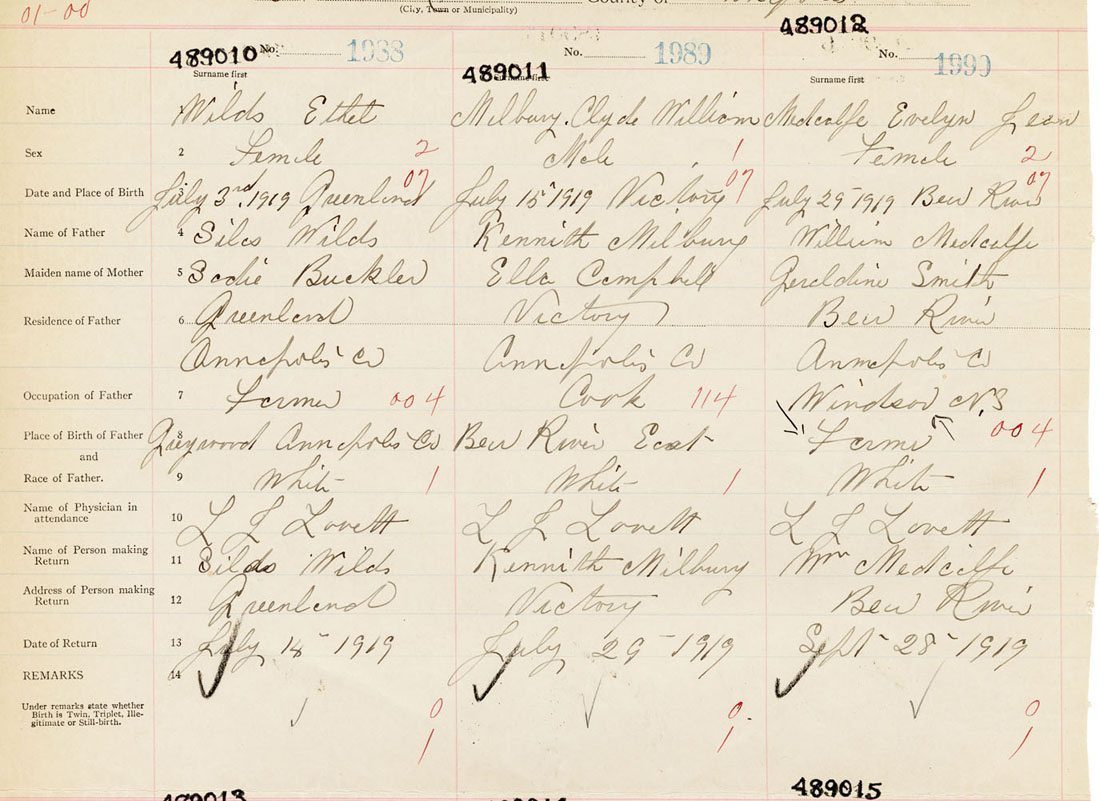 01-00
(City, Town or Municipality)
County of
489010 No. 1988
489011 No. 1989
489012 No. 1990
Surname first
Surname first
Surname first
Name Wilds Ethel Milbury Clyde William Medcalfe Evelyn Jean
Sex 2 Female 2 Male 1 Female 2
Date and Place of Birth 3 July 3rd 1919 Greenland 07 July 15 1919 Victory 07 July 29 1919 Bear River 07
Name of Father 4 Silas Wilds Kennith Milbury William Medcalfe
Maiden name of Mother 5 Sadie Buckler Ella Campbell Geraldine Smith
Residence of Father 6 Greenland Victory Bear River
Annapolis Co Annapolis Co Annapolis Co
Occupation of Father 7 Farmer 004 Cook 114 Windsor N.S
Place of Birth of Father 8 Graywood Annapolis Co Bear River East Farmer 004
and
Race of Father. 9 White 1 White 1 White 1
Name of Physician in
attendance 10 L J Lovett L J Lovett L J Lovett
Name of Person making
Return 11 Silas Wilds Kennith Milbury Wm Medcalfe
Address of Person making
Return 12 Greenland Victory Bear River
Date of Return 13 July 14 1919 July 29 1919 Sept 28 1919
REMARKS 14
Under remarks state whether
Birth is Twin, Triplet, Ille-
gitimate or Still-birth.
0 0 0
1 1 1
489013
489015